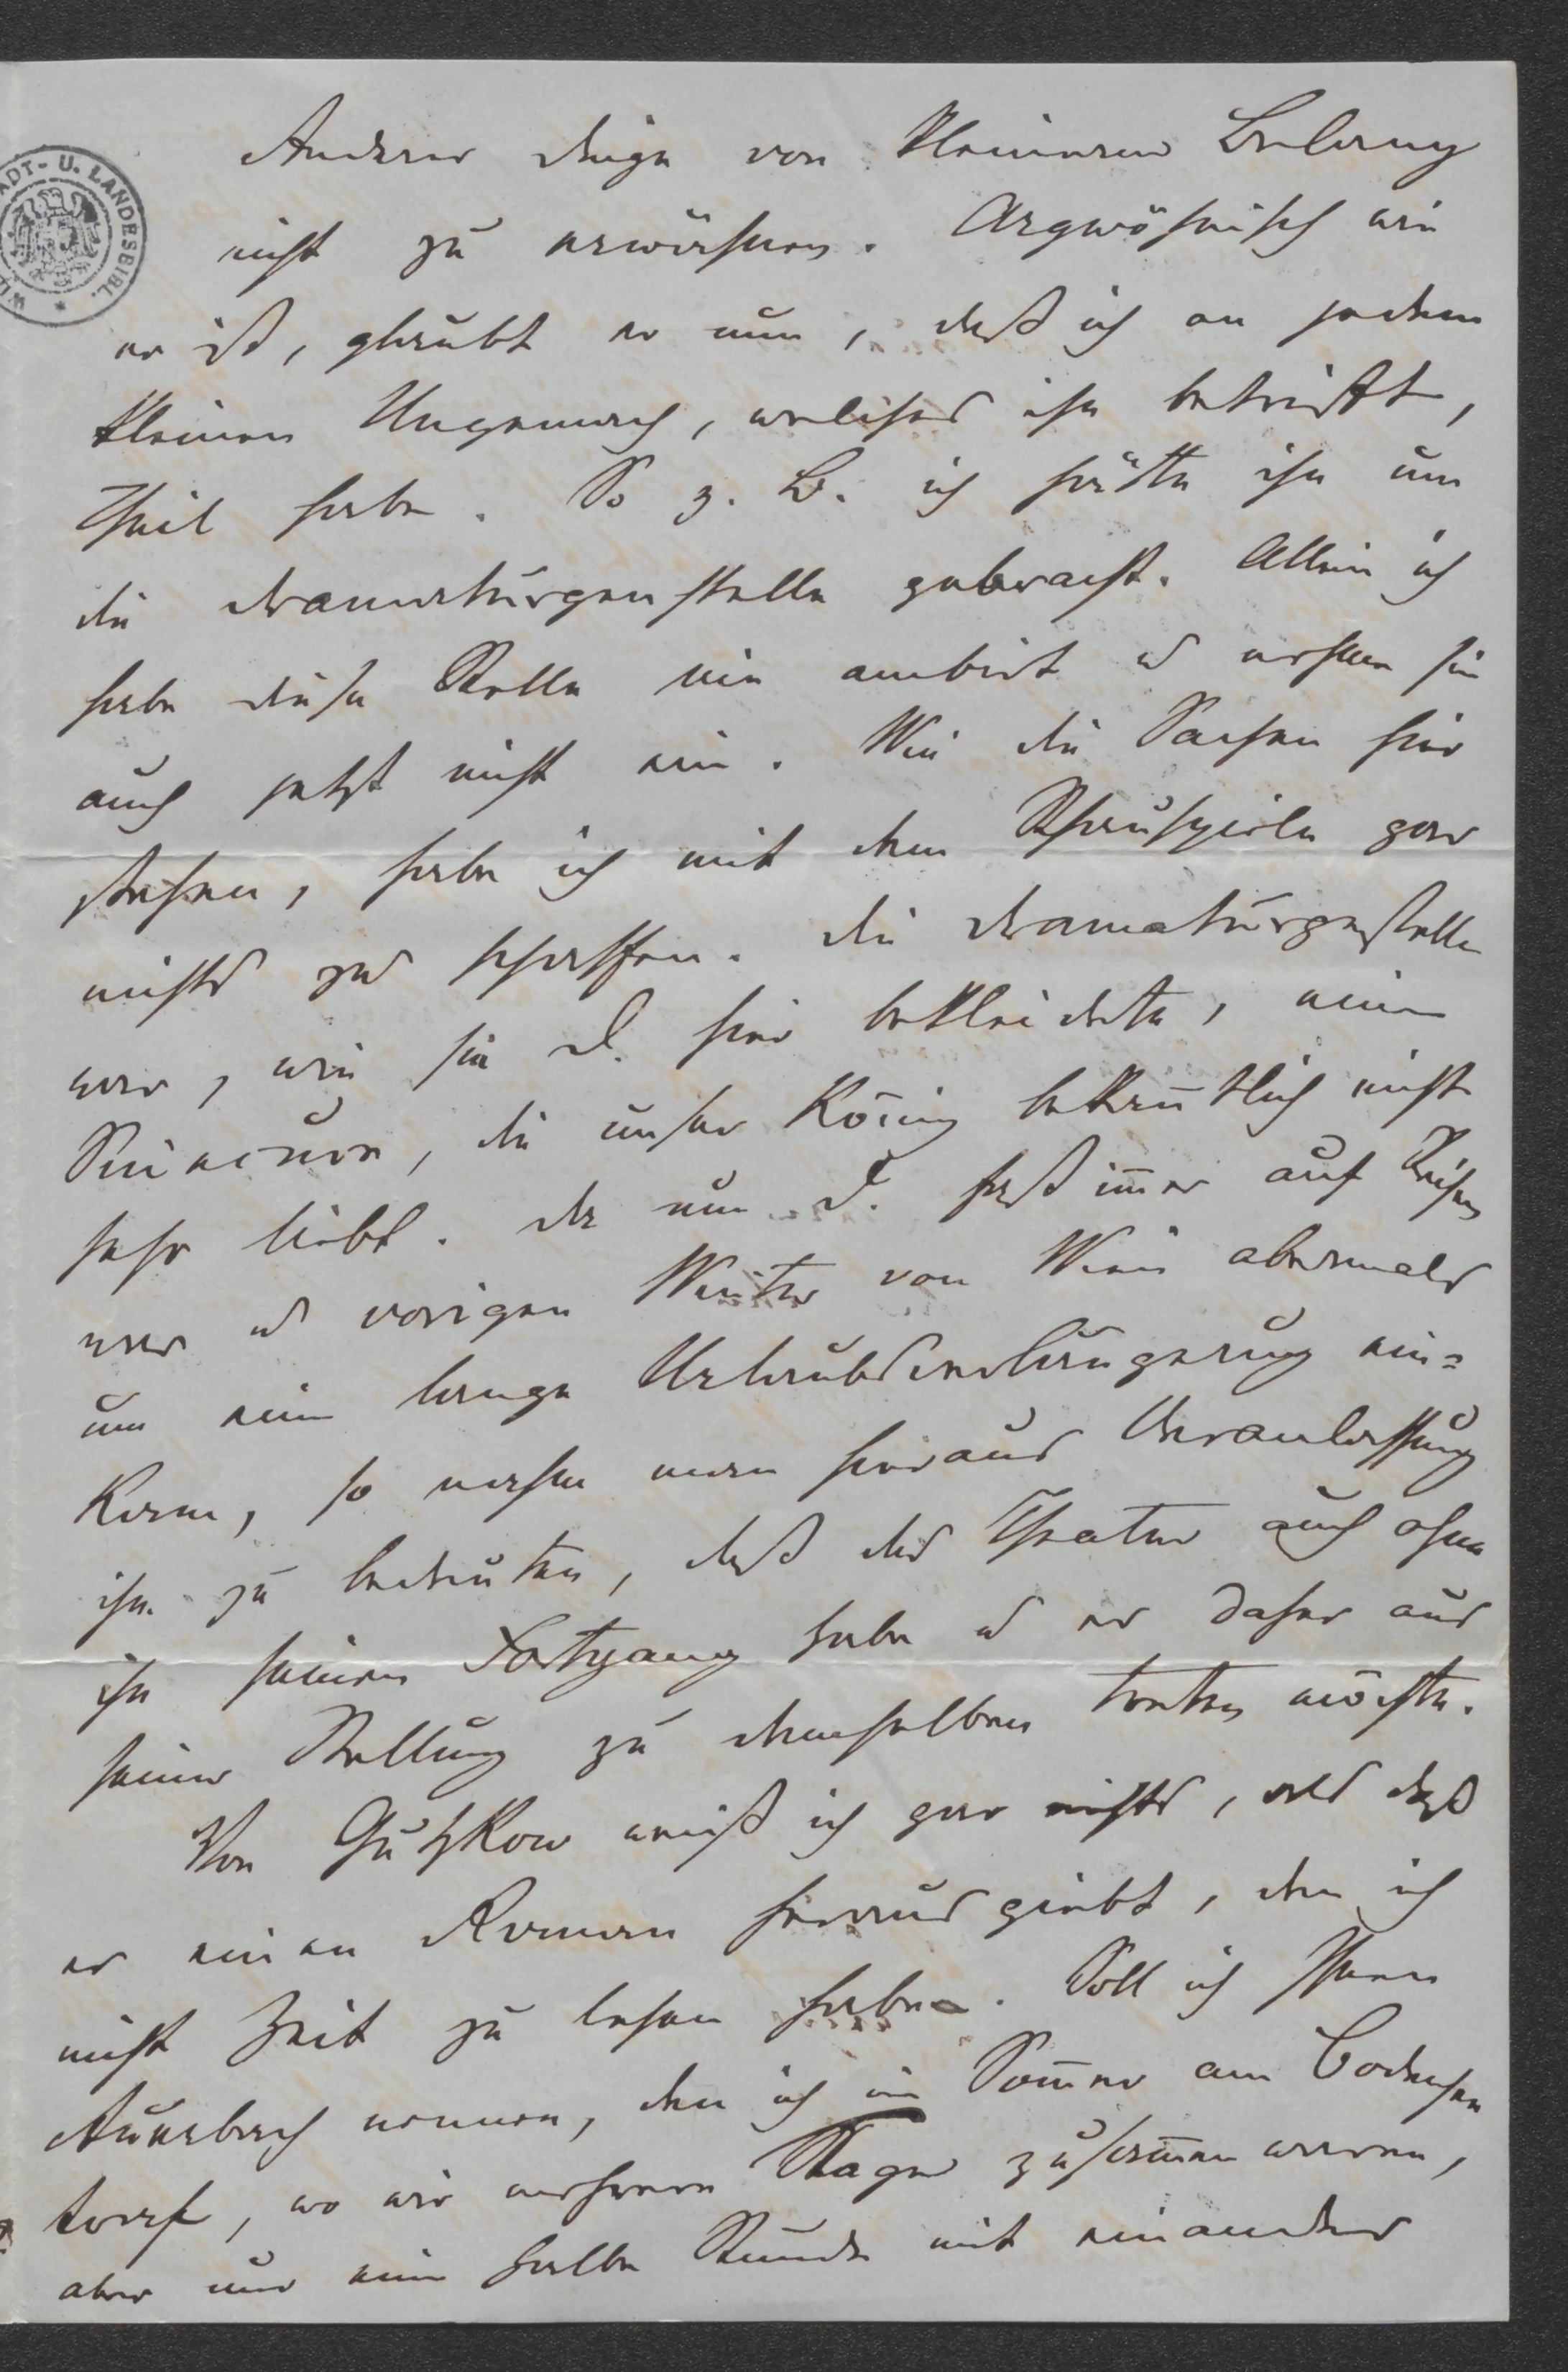 Anderer Dinge von kleinerem Belang
nicht zu erwähnen. Argwöhnisch wie
er ist, glaubt er nun, daß ich an jedem
kleinen Ungemach, welches ihn betrifft,
Theil habe. So z. B. ich hätte ihn um
die Dramaturgenstelle gebracht. Allein ich
habe diese Stelle nie ambirt u nehme sie
auch jetzt nicht ein. Wie die Sachen hier
stehen, habe ich mit dem Schauspiele gar
nichts zu schaffen. Die Dramaturgestelle
war, wie sie D. hier bekleidete, eine
Sinecure, die unser König bekanntlich nicht
sehr liebt. Da nun D. fast im̄er auf Reisen
war u vorigen Winter von Wien abermals
um eine lange Urlaubsverlängerung ein=
kam, so nahm man hieraus Veranlassung
ihm zu bedeuten, daß das Theater auch ohne
ihn seinen Fortgang habe u er daher aus
seiner Stellung zu demselben treten möchte.
Von Gutzkow weiß ich gar nichts, als daß
er einen Roman herausgiebt, den ich
nicht Zeit zu lesen habe. Soll ich Ihnen
Auerbach nennen, den ich im Som̄er am Bodensee
traf, wo wir mehrere Tage zusam̄en waren,
aber nur eine halbe Stunde mit einander
ADT- U. LANDESBIBL.